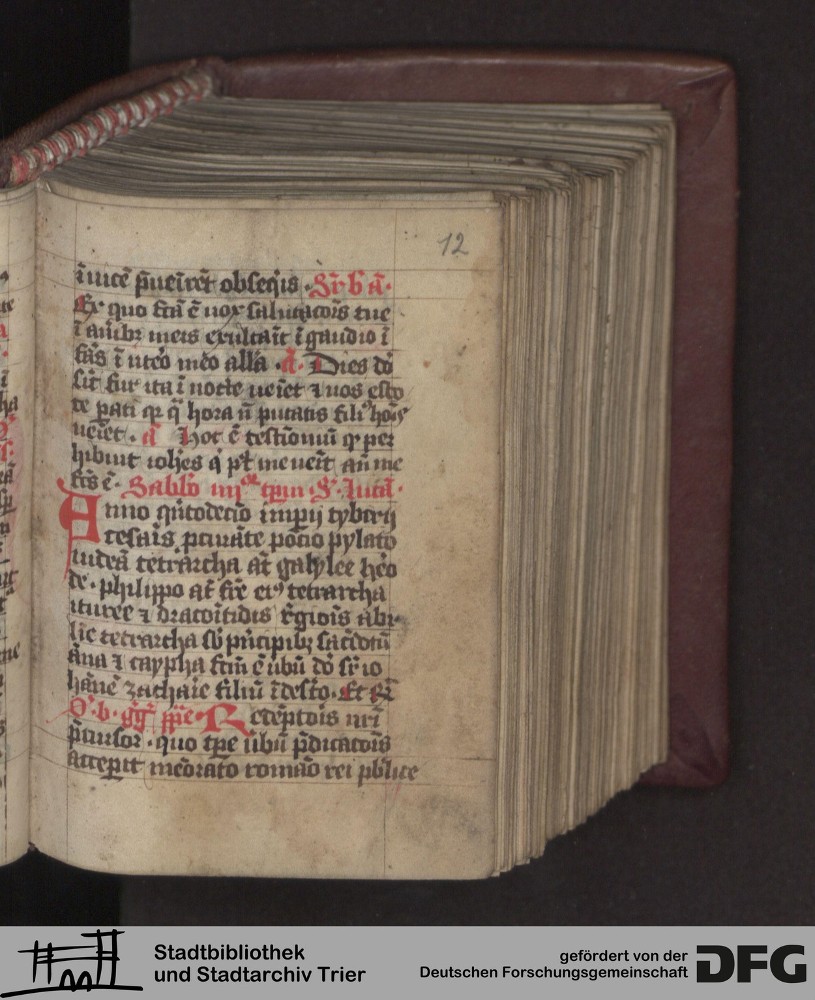 12
īuicē p̄ueīret obseq̄is · Sr̄ b̄ ā·
Ex quo fc̄ā ē uox salutac̄ois tue
ī aurib; meis exultaīt ī gaudio ī
fās ī uteō meō allā · ā · Dies dō
sic̄ fur ita ī nocte ueīet ⁊ uos esto
te pati qr q̄ hora n̄ putatis fili⁹ hoīs
ueīet · ā Hoc ē testīoniū qr per
hibuit ioh̄es q̄ pt̄ me uēit an̄ me
fc̄s ē · Sabb̄o iiij^or tp̄m · S · lucā·
Anno qīntodecīo imp̄ij tyberij
cesar̄is p̄curāte pōcio pylato
iudeā tetrarcha āt galylee hēo
de · philippo āt fr̄e ei⁹ tetrarcha
ituree ⁊ dracoītidis r̄gioīs abi
lie tetrarcha sb̄ p̄ncipib; sac̄dotū
āna ⁊ caypha fc̄m ē ūbū dō sr̄ io
hānē zachaīe filiū ī desto · Et r̄
O · b · gḡ pp̄e · Redēptōis nr̄i
p̄cursor · quo tp̄e ūbū p̄dicatōis
accepit meōrato romāo rei pb̄lice
Stadtbibliothek
und Stadtarchiv Trier
gefördert von der
Deutschen Forschungsgemeinschaft
DFG